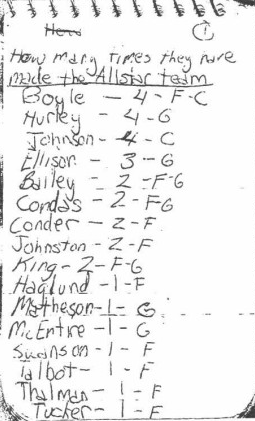 Hera ①
How many times they have
made the Allstar team
Boyle — 4 - F-C
Hurley - 4 - G
Johnson - 4 - C
Ellison - 3 - G
Bailey - 2 - F-G
Condas - 2 - FG
Conder - 2 - F
Johnston - 2 - F
King - 2 - F-G
Haglund - 1 - F
Matheson - 1 - G
McEntire - 1 - G
Swanson - 1 - F
Talbot - 1 - F
Thalman - 1 - F
Tucker - 1 - F